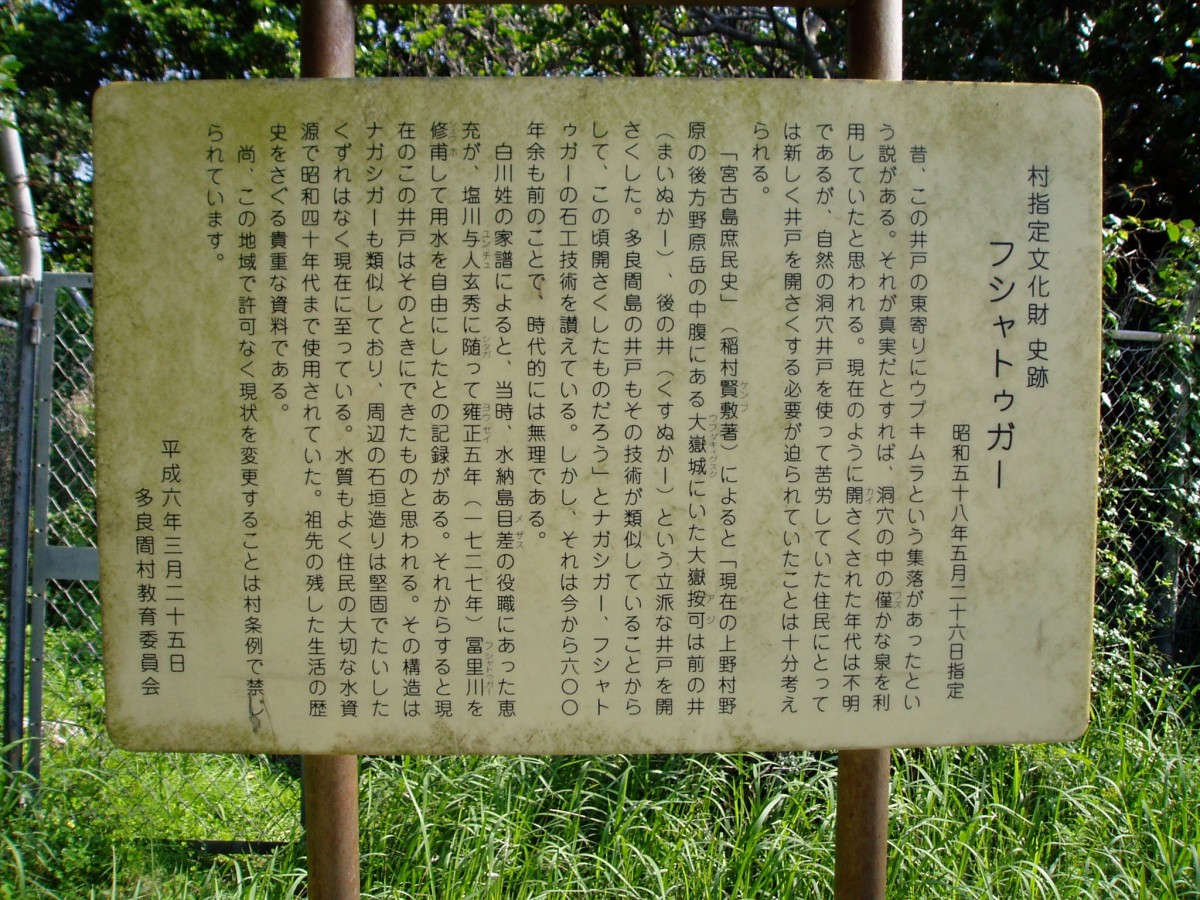 村指定文化財 史跡
フシャトゥガー
昭和五十八年五月二十六日指定
昔、この井戸の東寄りにウプキムラという集落があったとい
う説がある。それが真実だとすれば、洞穴の中の僅かな泉を利
用していたと思われる。現在のように開さくされた年代は不明
であるが、自然の洞穴井戸を使って苦労していた住民にとって
は新しく井戸を開さくする必要が迫られていたことは十分考え
られる。
「宮古島庶民史」（稲村賢敷著）によると「現在の上野村野
原の後方野原岳の中腹にある大嶽城にいた大嶽按可は前の井
（まいぬかー）、後の井（くすぬかー）という立派な井戸を開
さくした。多良間島の井戸もその技術が類似していることから
して、この頃開さくしたものだろう」とナガシガー、フシャト
ゥガーの石工技術を讃えている。しかし、それは今から六〇〇
年余も前のことで、時代的には無理である。
白川姓の家譜によると、当時、水納島目差の役職にあった恵
充が、塩川与人玄秀に随って雍正五年（一七二七年）冨里川を
修甫して用水を自由にしたとの記録がある。それからすると現
在のこの井戸はそのときにできたものと思われる。その構造は
ナガシガーも類似しており、周辺の石垣造りは堅固でたいした
くずれはなく現在に至っている。水質もよく住民の大切な水資
源で昭和四十年代まで使用されていた。祖先の残した生活の歴
史をさぐる貴重な資料である。
尚、この地域で許可なく現状を変更することは村条例で禁じ
られています。
平成六年三月二十五日
多良間村教育委員会